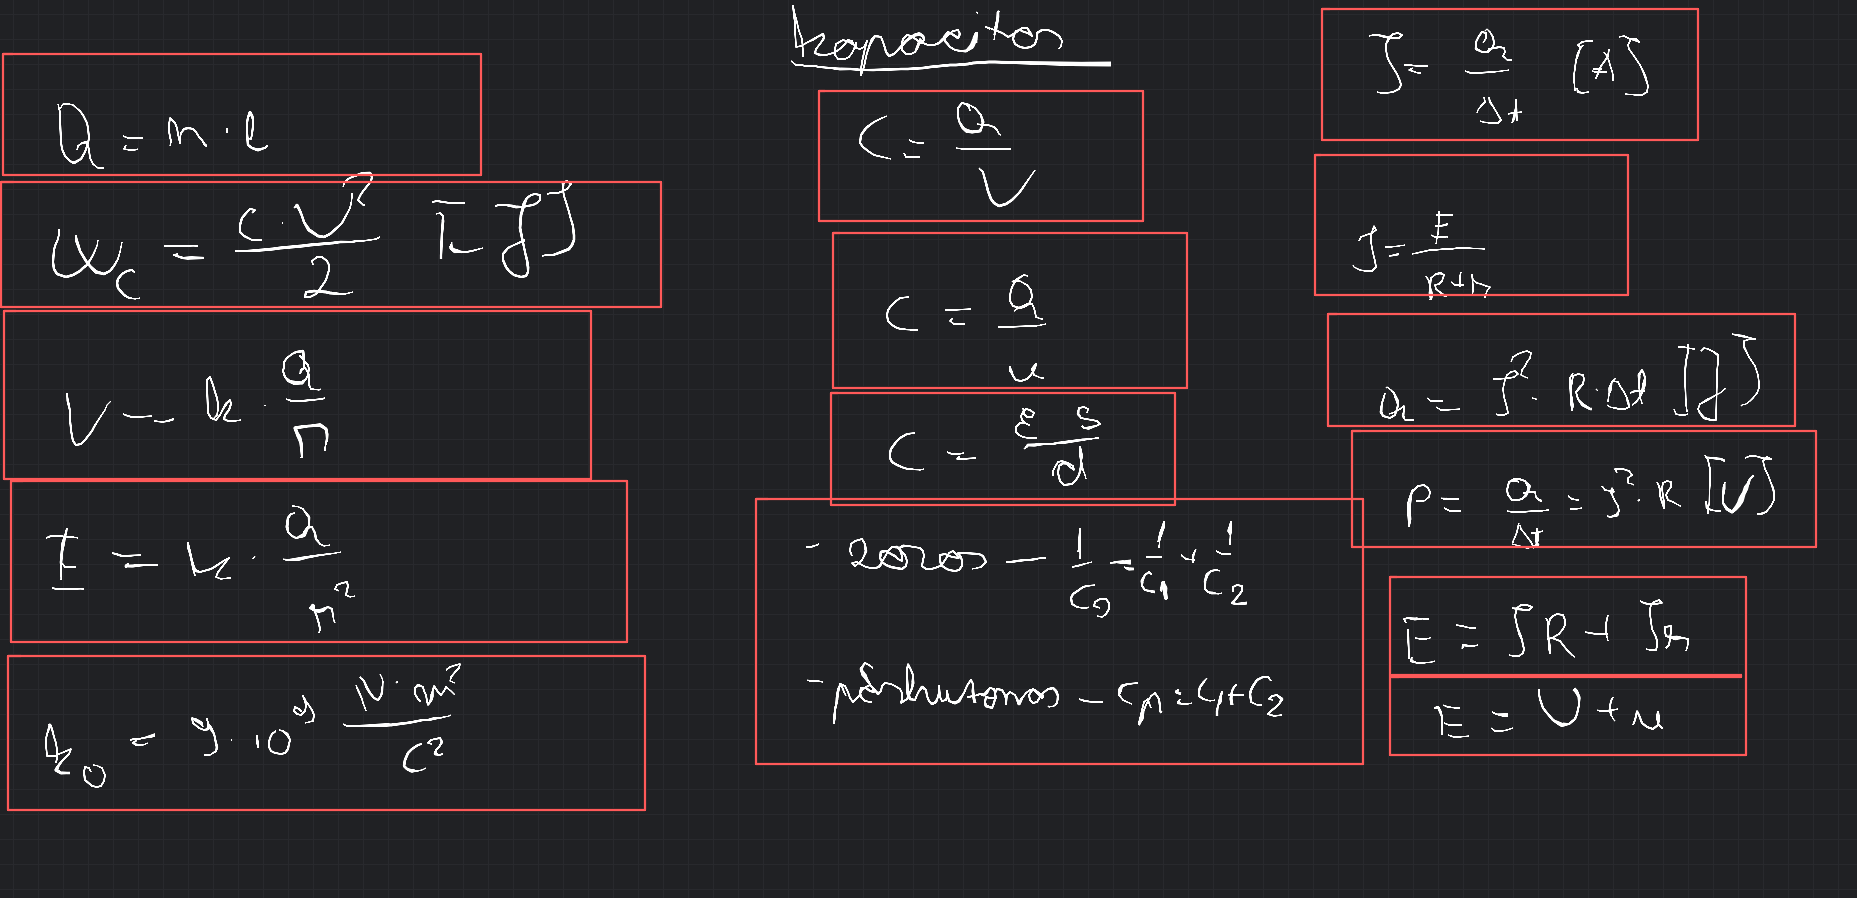 Q = n · e
W_C = C · V² / 2 [J]
V = k · Q / r
E = k · Q / r²
k₀ = 9 · 10⁹ N · m² / C²
kapacitas
C = Q / V
C = Q / u
C = ε S / d
- soros – 1/C₀ = 1/C₁ + 1/C₂
- párhuzamos – Cp = C₁ + C₂
I = Q / Δt [A]
I = E / R + r
Q = I² · R · Δt [J]
P = Q / Δt = I² · R [V]
E = IR + Ir
E = U + u